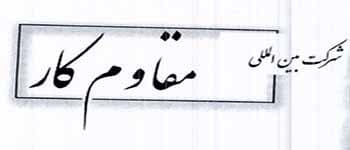 شرکت بین المللی
مقاوم کار